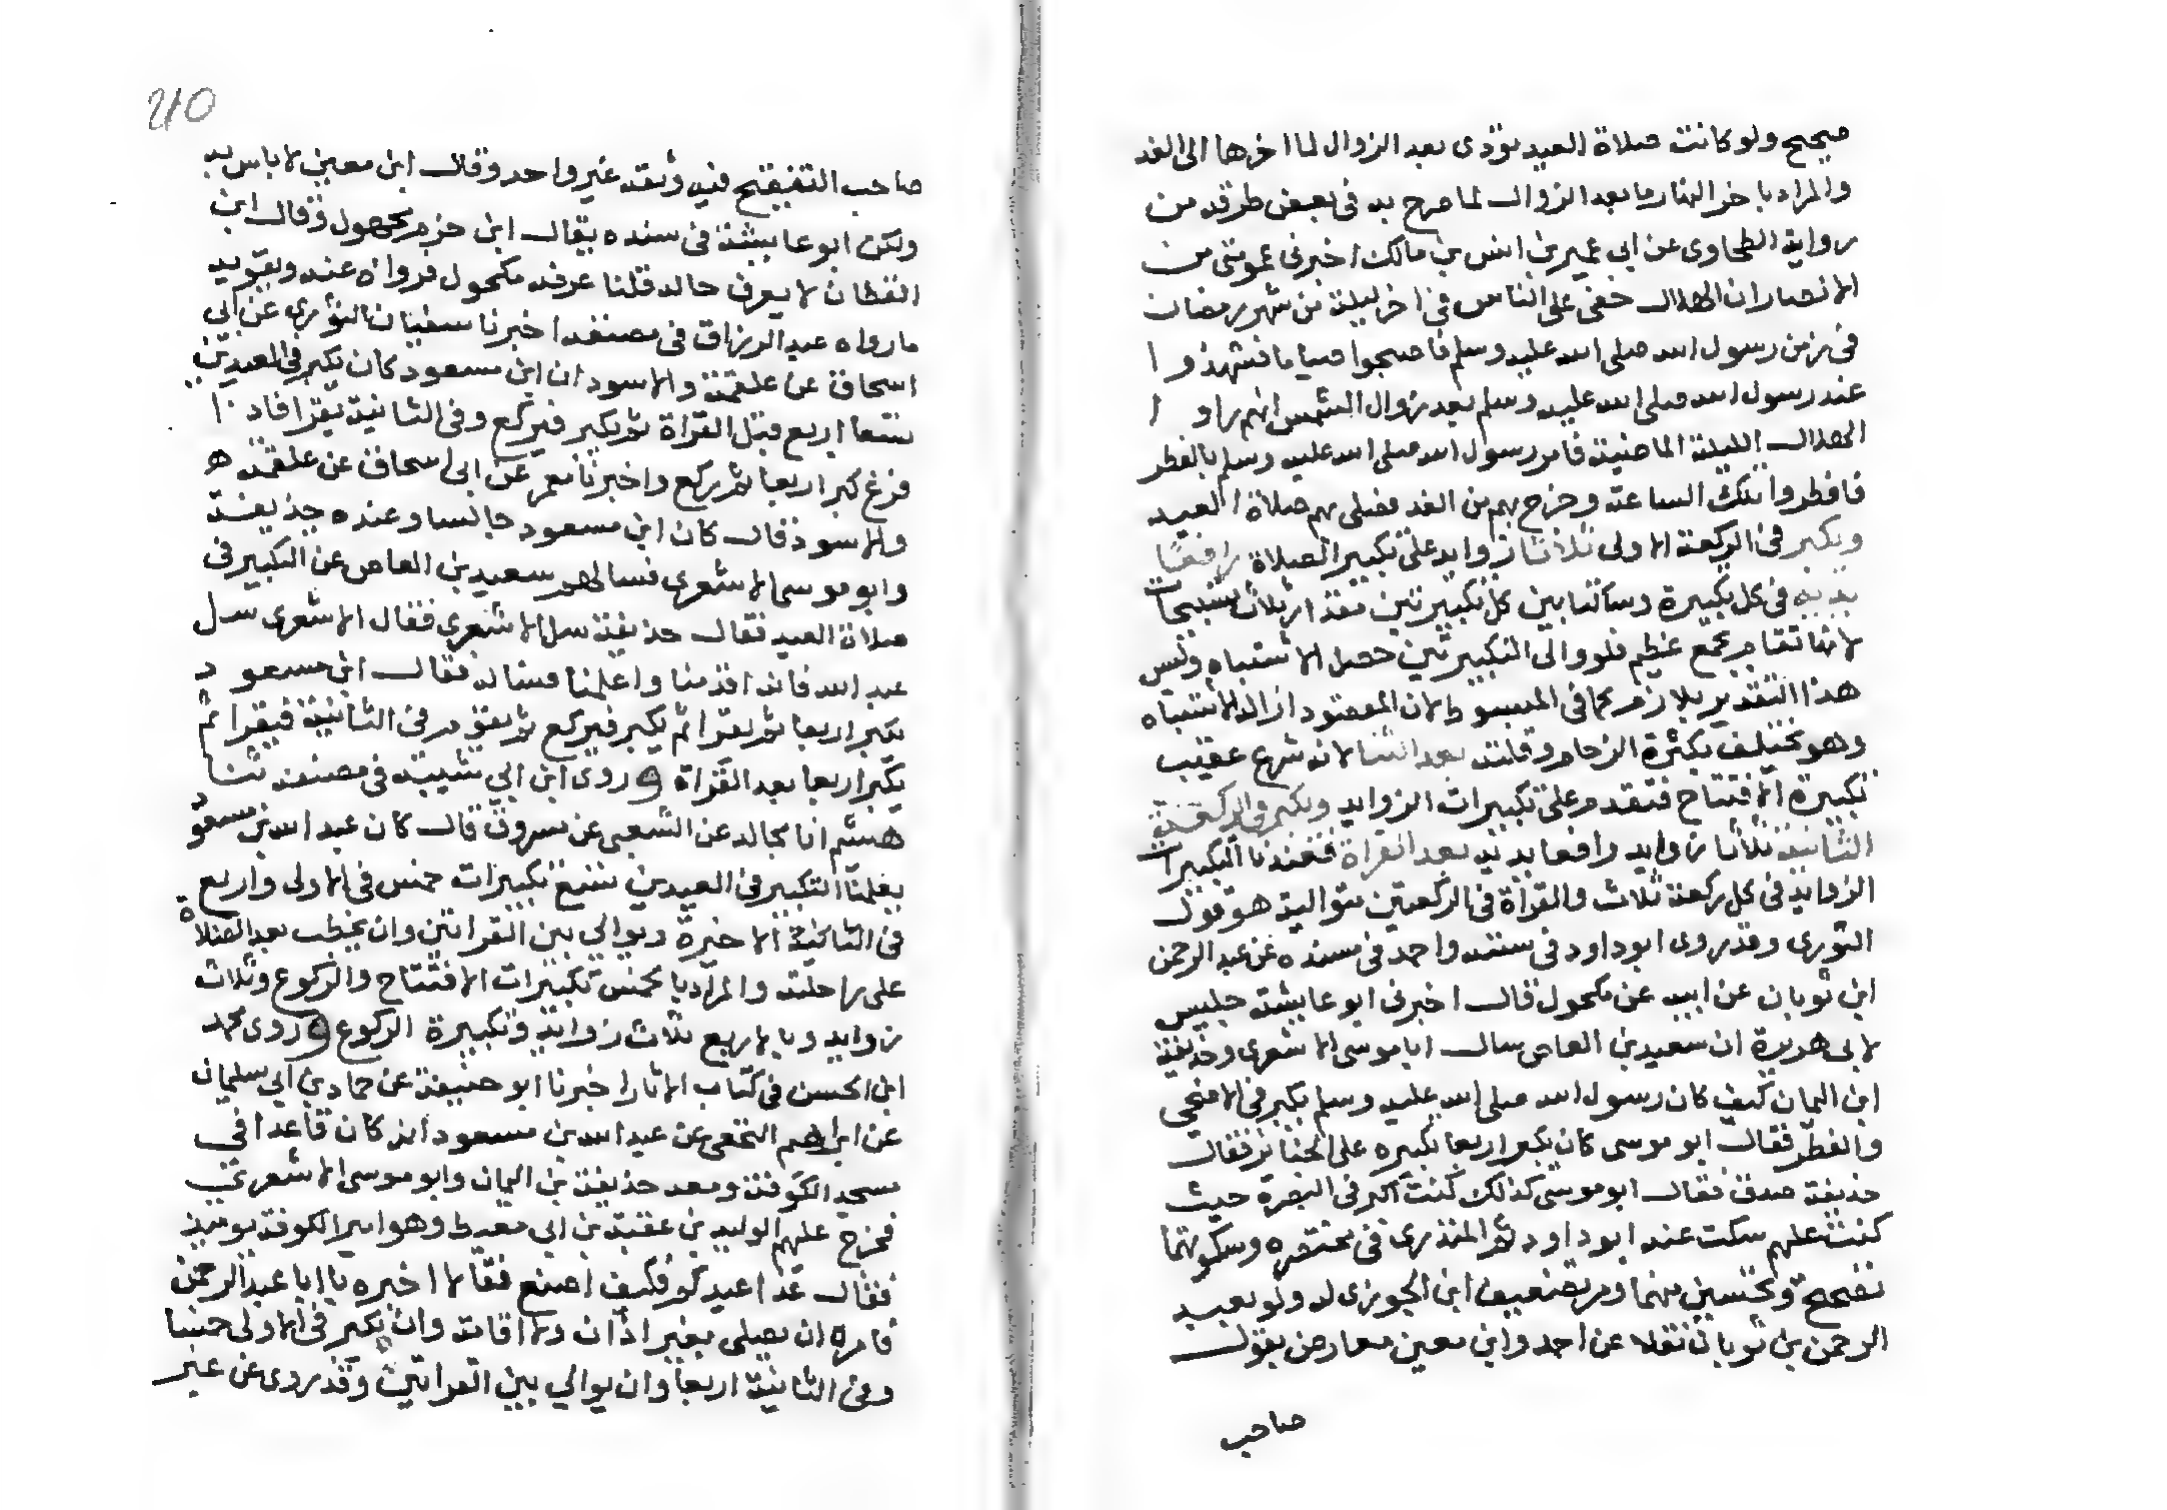 صحيح ولو كانت صلاة العيد تؤدى بعد الزوال لما اخرها الى الغد
والمراد باخر النهار ما بعد الزوال لما صرح به فى بعض طرقه من
رواية الطحاوى عن ابى عمير بن انس بن مالك اخبرنى عمومتى من
الانصار ان الهلال خفى على الناس فى اخر ليلة من شهر رمضان
فى زمن رسول الله صلى الله عليه وسلم فاصبحوا صياما فشهدوا
عند رسول الله صلى الله عليه وسلم بعد زوال الشمس انهم راوا
الهلال الليلة الماضية فامر رسول الله صلى الله عليه وسلم بالفطر
فافطروا تلك الساعة وخرج بهم من الغد فصلى بهم صلاة العيد
ويكبر فى الركعة الاولى ثلاثا زوايد على تكبير الصلاة رافعا
يديه فى كل تكبيرة وساكتا بين كل تكبيرتين مقدار ثلاث تسبيحات
لانها تقام بجمع عظيم فلو والى التكبيرتين حصل الاشتباه وليس
هذا التقدير بلازم كما فى المبسوط لان المقصود ازالة الاشتباه
وهو يختلف بكثرة الزحام وقلته بعد الثنا لانه شرع عقيب
تكبيرة الافتتاح فتقدم على تكبيرات الزوايد ويكبر فى الركعة
الثانية ثلاثا زوايد رافعا يديه بعد القراة فعندنا التكبيرات
الزوايد فى كل ركعة ثلاث والقراة فى الركعتين متوالية هو قول
الثورى وقد روى ابو داود فى سننه واحمد فى مسنده عن عبد الرحمن
ابن ثوبان عن ابيه عن مكحول قال اخبرنى ابو عايشة جليس
لابى هريرة ان سعيد بن العاص سال ابا موسى الاشعرى وحذيفة
ابن اليمان كيف كان رسول الله صلى الله عليه وسلم يكبر فى الاضحى
والفطر فقال ابو موسى كان يكبر اربعا تكبيره على الجنايز فقال
حذيفة صدق فقال ابو موسى كذلك كنت اكبر فى البصرة حيث
كنت عليهم سكت عنه ابو داود ثم المنذرى فى مختصره وسكوتهما
تصحيح وتحسين منهما ومر تضعيف ابن الجوزى له ولو بعبد
الرحمن بن ثوبان نقلا عن احمد وابن معين معارض بقول
صاحب
210
صاحب التنقيح فيه وثقه غير واحد وقال ابن معين لا باس به
ولكن ابو عايشة فى سنده يقال ابن حزم مجهول وقال ابن
القطان لا يعرف حاله قلنا عرفه مكحول فرواه عنه وتقويه
ما رواه عبد الرزاق فى مصنفه اخبرنا سفيان الثورى عن ابى
اسحاق عن علقمة والاسود ان ابن مسعود كان يكبر فى العيدين
تسعا اربع قبل القراة ثم يكبر فيركع وفى الثانية يقرا فاذا
فرغ كبر اربعا ثم ركع واخبرنا معمر عن ابى اسحاق عن علقمة
والاسود قال كان ابن مسعود جالسا وعنده حذيفة
وابو موسى الاشعرى فسالهم سعيد بن العاص عن التكبير فى
صلاة العيد فقال حذيفة سل الاشعرى فقال الاشعرى سل
عبد الله فانه اقدمنا واعلمنا فساله فقال ابن مسعود
يكبر اربعا ثم يقرا ثم يكبر فيركع ثم يقوم فى الثانية فيقرا ثم
يكبر اربعا بعد القراة وروى ابن ابى شيبة فى مصنفه ثنا
هشيم انا مجالد عن الشعبى عن مسروق قال كان عبد الله بن مسعود
يعلمنا التكبير فى العيدين تسع تكبيرات خمس فى الاولى واربع
فى الثانية الاخيرة ويوالى بين القراتين وان يخطب بعد الصلاة
على راحلته والمراد بالخمس تكبيرات الافتتاح والركوع وثلاث
زوايد وبالاربع ثلاث زوايد وتكبيرة الركوع وروى محمد
ابن الحسن فى كتاب الاثار اخبرنا ابو حنيفة عن حماد بن ابى سليمان
عن ابراهيم النخعى عن عبد الله بن مسعود انه كان قاعدا فى
مسجد الكوفة ومعه حذيفة بن اليمان وابو موسى الاشعرى
فخرج عليهم الوليد بن عقبة بن ابى معيط وهو امير الكوفة يوميذ
فقال غدا عيدكم فكيف اصنع فقالا اخبره يا ابا عبد الرحمن
فامره ان يصلى بغير اذان ولا اقامة وان يكبر فى الاولى خمسا
وفى الثانية اربعا وان يوالى بين القراتين وقد روى عن غير